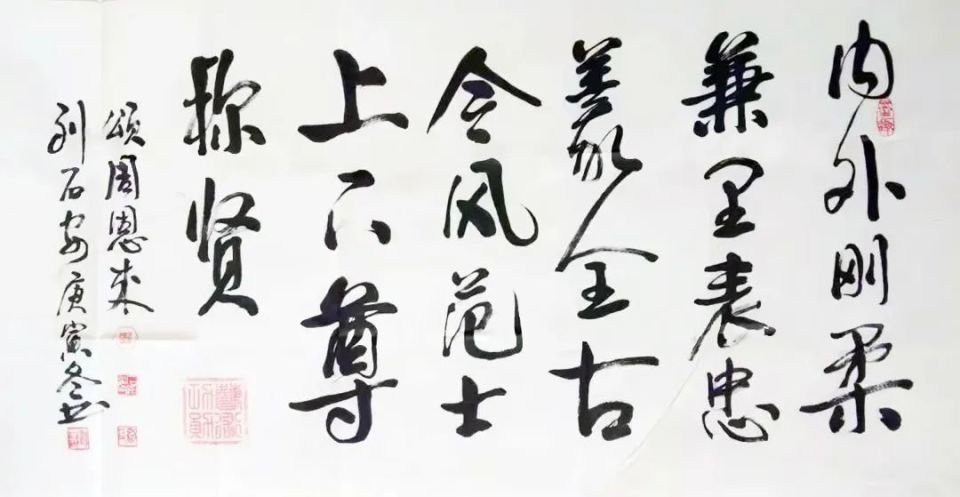 内外刚柔
兼里表忠
義全古
今风范士
上下尊
称贤
颂周恩来
刘石安庚寅冬书